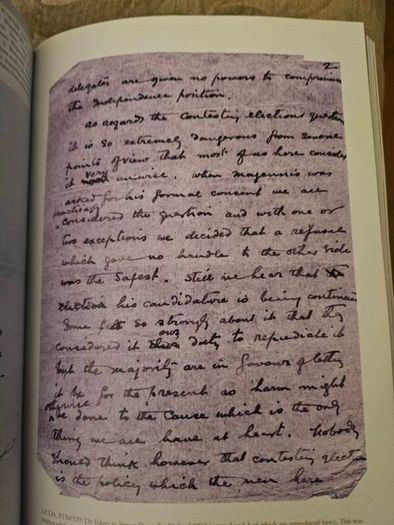 2
delegates are given no powers to compromise
the Independence position.
As regards the contesting elections question
it is so extremely dangerous from several
points of view that most of us here consider
it very unwise. When Maguinness was
asked for his formal consent we all
practically
considered the question and with one or
two exceptions we decided that a refusal
which gave no handle to the other side
was the safest. Still we hear that
his candidature is being continued
Some felt so strongly about it that they
considered it our duty to repudiate it
but the majority are in favour of letting
it be for the present as harm might
otherwise
be done to the cause which is the only
thing we have at heart. Nobody
should think however that contesting elections
is the policy which the men here
UCDA P150/529: De Valera